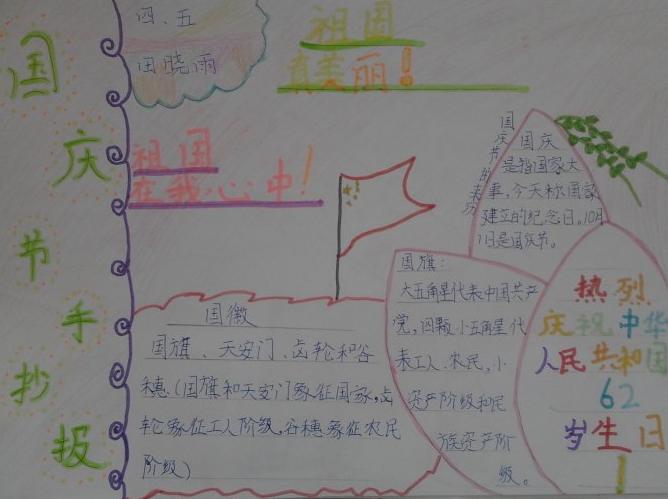 国庆节手抄报
四、五
田晓雨
祖国
真美丽！
祖国
在我心中！
国庆节的来历
国庆
是指国家大
事，今天称国家
建立的纪念日。10月
1日是国庆节。
国旗：
大五角星代表中国共产
党，四颗小五角星代
表工人、农民，小
资产阶级和民
族资产阶
级。
国徽
国旗、天安门、齿轮和谷
穗（国旗和天安门象征国家，齿
轮象征工人阶级，谷穗象征农民
阶级）
热烈
庆祝中华
人民共和国
62
岁生日
！